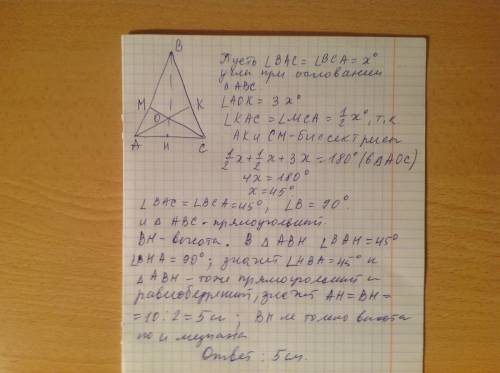 B
M
K
O
A
H
C
Пусть ∠BAC = ∠BCA = x°
углы при основании
△ABC.
∠AOK = 3x°
∠KAC = ∠MCA = 1/2 x°, т.к
AK и CM - биссектрисы
1/2x + 1/2x + 3x = 180° (в △AOC)
4x = 180°
x = 45°
∠BAC = ∠BCA = 45°, ∠B = 90°
и △ABC - прямоугольный.
BH - высота. В △ABH ∠BAH = 45°
∠BHA = 90°; значит ∠HBA = 45° и
△ABH - тоже прямоугольный и
равнобедрений, значит AH = BH =
= 10 : 2 = 5 см; BH не только высота
но и медиана
Ответ: 5 см.